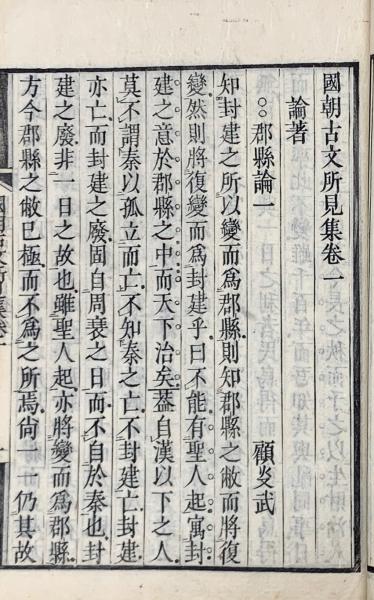 國朝古文所見集卷一
論著
○○郡縣論一 顧炎武
知封建之所以變而爲郡縣則知郡縣之敝而將復
變然則將復變而爲封建乎曰不能有聖人起寓封
建之意於郡縣之中而天下治矣葢自漢以下之人
莫不謂秦以孤立而亡不知秦之亡不封建亡封建
亦亡而封建之廢固自周衰之日而不自於秦也封
建之廢非一日之故也雖聖人起亦將變而爲郡縣
方今郡縣之敝已極而不爲之所焉尙一一仍其故